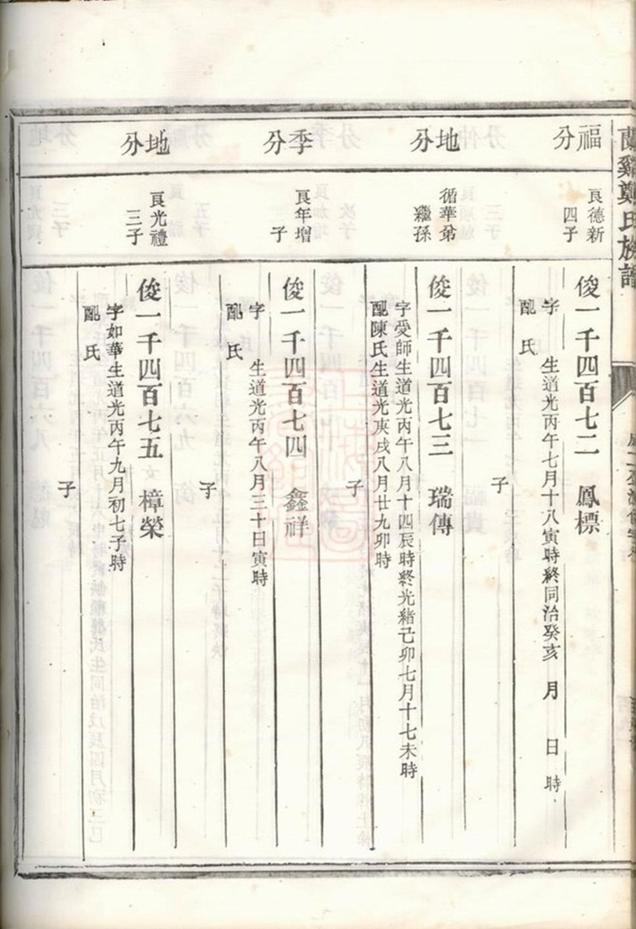 蘭谿鄭氏族譜
福分
良德新
四子
俊一千四百七二 鳳標
字 生道光丙午七月十八寅時終同治癸亥 月 日 時
配 氏
子
地分
循華弟
繼孫
俊一千四百七三 瑞傳
字愛師生道光丙午八月十四辰時終光緒己卯七月十七未時
配陳氏生道光庚戌八月廿九卯時
子
季分
良年增
子
俊一千四百七四 鑫祥
字 生道光丙午八月三十日寅時
配 氏
子
地分
良光禮
三子
俊一千四百七五 樟榮
字如華生道光丙午九月初七子時
配 氏
子